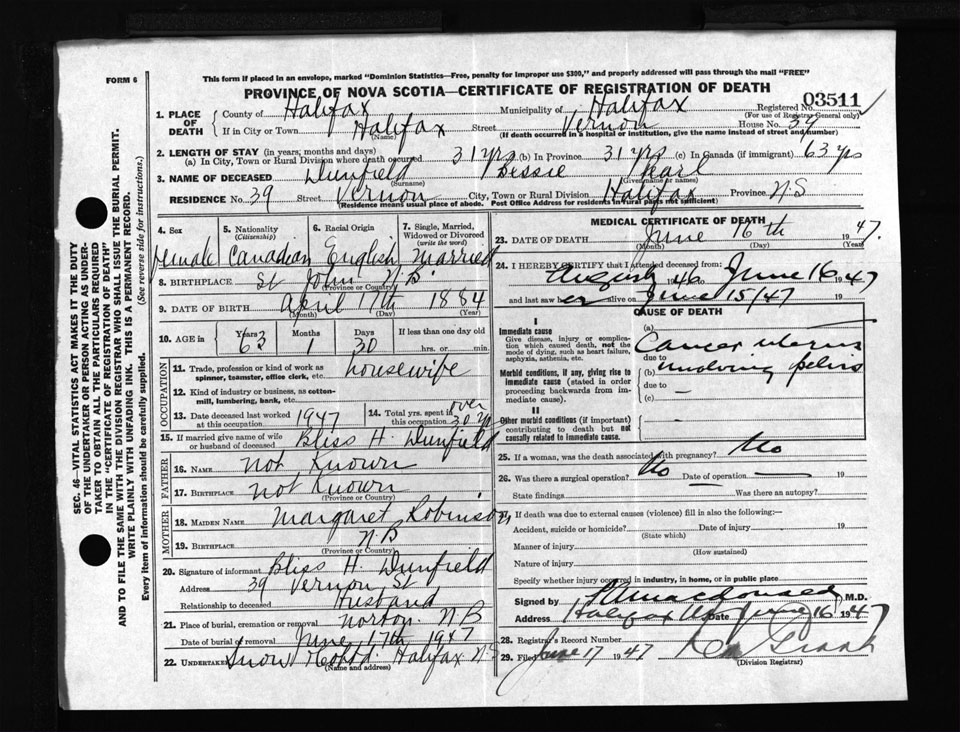 FORM 6
This form if placed in an envelope, marked "Dominion Statistics—Free, penalty for improper use $300," and properly addressed will pass through the mail "FREE"
PROVINCE OF NOVA SCOTIA—CERTIFICATE OF REGISTRATION OF DEATH
03511
1. PLACE OF DEATH { County of Halifax Municipality of Halifax Registered No. (For use of Registrar General only)
If in City or Town Halifax (Name) Street Vernon House No. 39
(If death occurred in a hospital or institution, give the name instead of street and number)
2. LENGTH OF STAY (in years, months and days)
(a) In City, Town or Rural Division where death occurred 31 yrs (b) In Province 31 yrs (c) In Canada (if immigrant) 63 yrs
3. NAME OF DECEASED Dunfield (Surname) Bessie Pearl (Given name or names)
RESIDENCE No. 39 Street Vernon City, Town or Rural Division Halifax Province N.S
(Residence means usual place of abode. Post Office Address for residents in rural parts not sufficient)
4. Sex 5. Nationality (Citizenship) 6. Racial Origin 7. Single, Married, Widowed or Divorced (write the word)
Female Canadian English Married
8. BIRTHPLACE St John N.B (Province or Country)
9. DATE OF BIRTH April 17th 1884 (Month) (Day) (Year)
10. AGE in { Years 63 Months 1 Days 30 If less than one day old hrs. or min.
OCCUPATION
11. Trade, profession or kind of work as spinner, teamster, office clerk, etc. housewife
12. Kind of industry or business, as cotton-mill, lumbering, bank, etc.
13. Date deceased last worked at this occupation 1947 14. Total yrs. spent in this occupation over 30 yrs
15. If married give name of wife or husband of deceased Bliss H. Dunfield
FATHER
16. NAME Not Known
17. BIRTHPLACE Not Known (Province or Country)
MOTHER
18. MAIDEN NAME Margaret Robinson
19. BIRTHPLACE N.B (Province or Country)
20. Signature of informant Bliss H. Dunfield
Address 39 Vernon St
Relationship to deceased Husband
21. Place of burial, cremation or removal Norton N B
Date of burial or removal June 17th 1947
22. UNDERTAKER Snow & Co Ltd. Halifax N.S (Name and address)
MEDICAL CERTIFICATE OF DEATH
23. DATE OF DEATH June 16th 1947. (Month) (Day) (Year)
24. I HEREBY CERTIFY that I attended deceased from:
August 1946 to June 16 1947
and last saw her alive on June 15/47 19
CAUSE OF DEATH
I
Immediate cause
Give disease, injury or complication which caused death, not the mode of dying, such as heart failure, asphyxia, asthenia, etc.
(a) Cancer uterus
due to
Morbid conditions, if any, giving rise to immediate cause (stated in order proceeding backwards from immediate).
(b) involving pelvis
due to —
(c) —
II
Other morbid conditions (if important) contributing to death but not causally related to immediate cause.
25. If a woman, was the death associated with pregnancy? No
26. Was there a surgical operation? No Date of operation — 19
State findings Was there an autopsy?
27. If death was due to external causes (violence) fill in also the following:—
Accident, suicide or homicide? (State which) Date of injury 19
Manner of injury (How sustained)
Nature of injury
Specify whether injury occurred in industry, in home, or in public place
Signed by Macdonald M.D.
Halifax Date June 16 1947
28. Registrar's Record Number
29. Filed June 17 1947
(Division Registrar)
SEC. 46—VITAL STATISTICS ACT MAKES IT THE DUTY
OF THE UNDERTAKER OR PERSON ACTING AS UNDERTAKER TO OBTAIN ALL THE PARTICULARS REQUIRED
IN THE "CERTIFICATE OF REGISTRATION OF DEATH"
AND TO FILE THE SAME WITH THE DIVISION REGISTRAR WHO SHALL ISSUE THE BURIAL PERMIT.
WRITE PLAINLY WITH UNFADING INK. THIS IS A PERMANENT RECORD.
Every item of information should be carefully supplied. (See reverse side for instructions.)